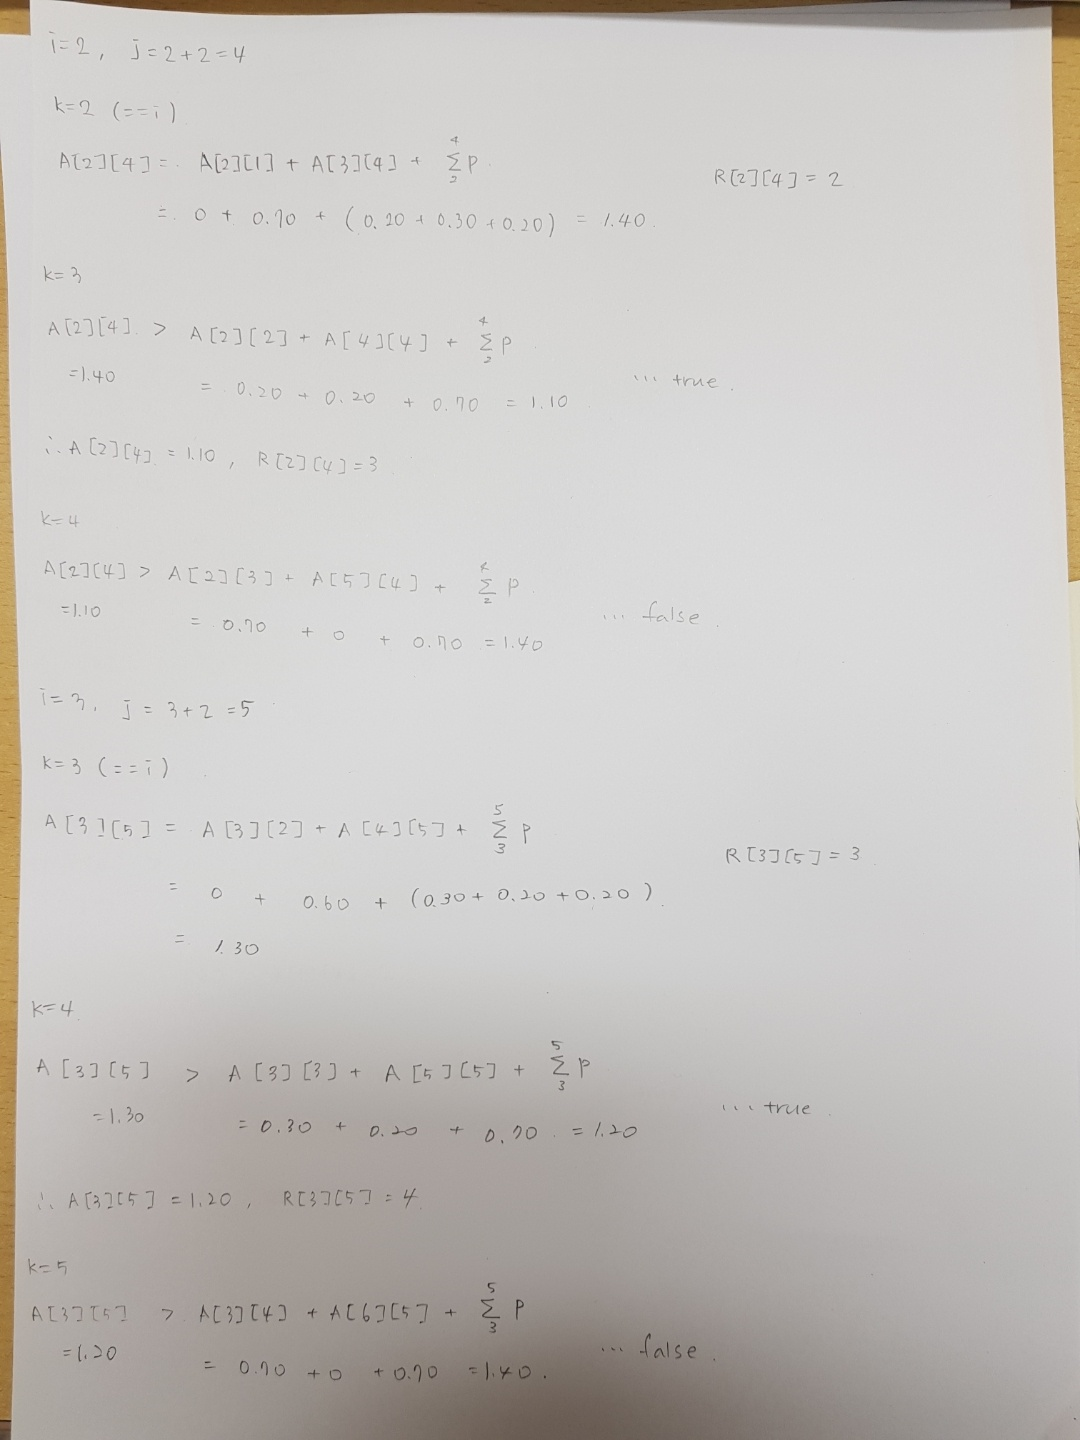 i=2, j=2+2=4
k=2 (==i)
A[2][4] = A[2][1] + A[3][4] + 4Σ2 P
R[2][4] = 2
= 0 + 0.70 + (0.20 + 0.30 + 0.20) = 1.40.
k=3
A[2][4] > A[2][2] + A[4][4] + 4Σ2 P
=1.40
= 0.20 + 0.20 + 0.70 = 1.10
... true.
∴ A[2][4] = 1.10, R[2][4]=3
k=4
A[2][4] > A[2][3] + A[5][4] + 4Σ2 P
=1.10
= 0.70 + 0 + 0.70 = 1.40
... false.
i=3, j = 3+2 =5
k=3 (==i)
A[3][5] = A[3][2] + A[4][5] + 5Σ3 P
R[3][5] = 3
= 0 + 0.60 + (0.30 + 0.20 + 0.20)
= 1.30
k=4
A[3][5] > A[3][3] + A[5][5] + 5Σ3 P
=1.30
= 0.30 + 0.20 + 0.70 = 1.20
... true
∴ A[3][5] = 1.20, R[3][5] = 4
k=5
A[3][5] > A[3][4] + A[6][5] + 5Σ3 P
=1.20
= 0.70 + 0 + 0.70 = 1.40.
... false.